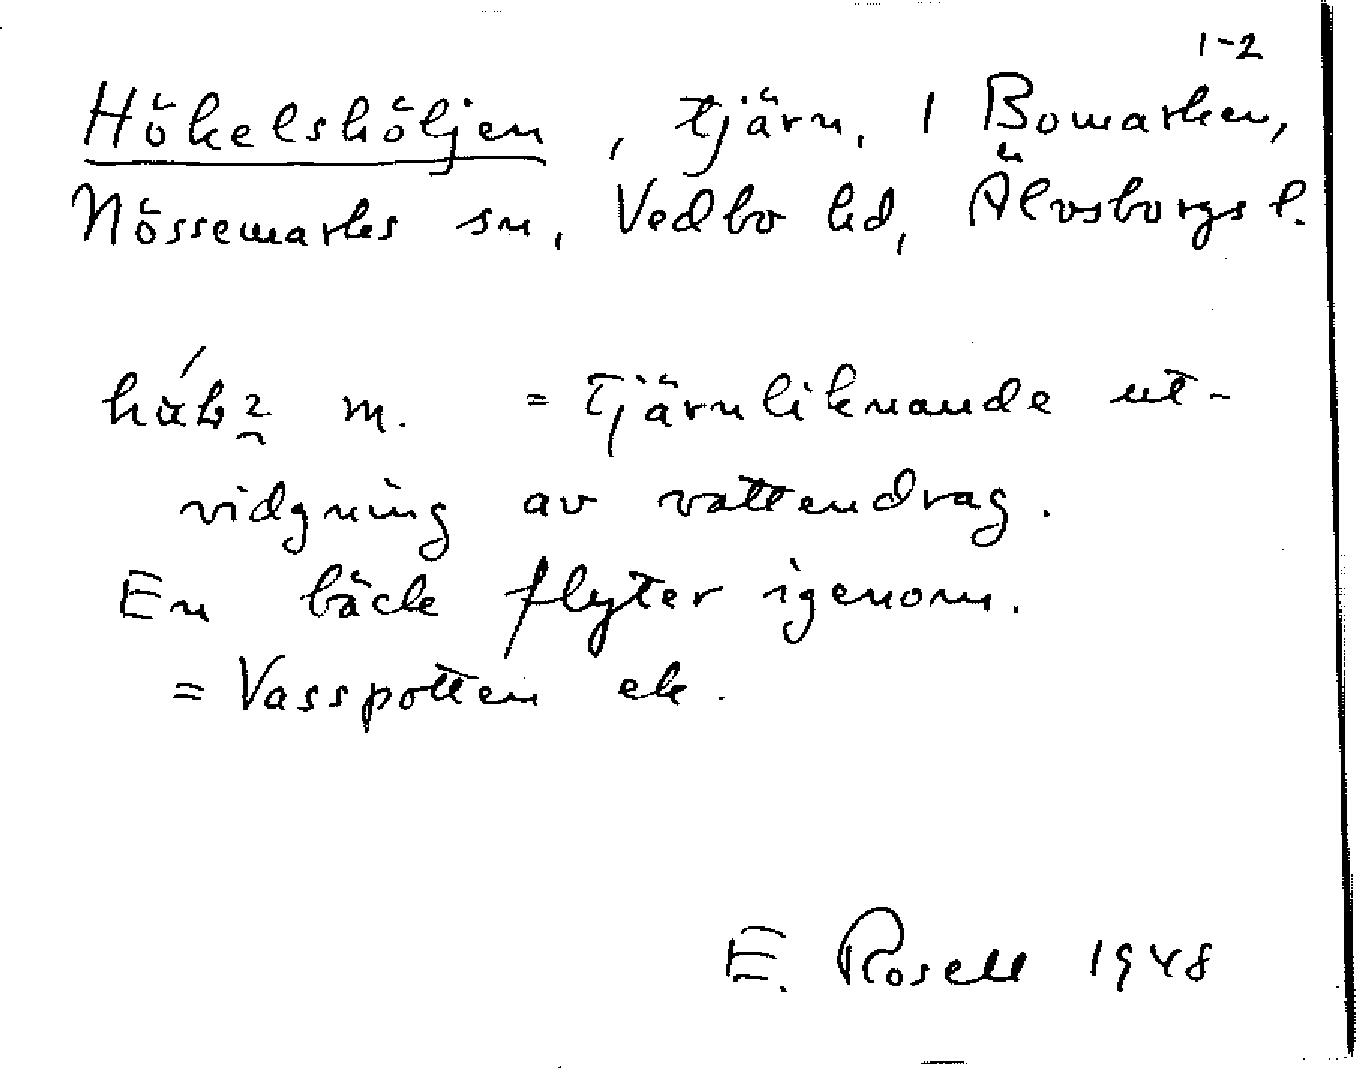 1-2
Hökelshöljen, tjärn, 1 Bomarken,
Nössemarks sn, Vedbo hd, Älvsborgs l.
m. = tjärnliknande ut-
vidgning av vattendrag.
En bäck flyter igenom.
= Vasspotten ek.
E. Rosell 1948